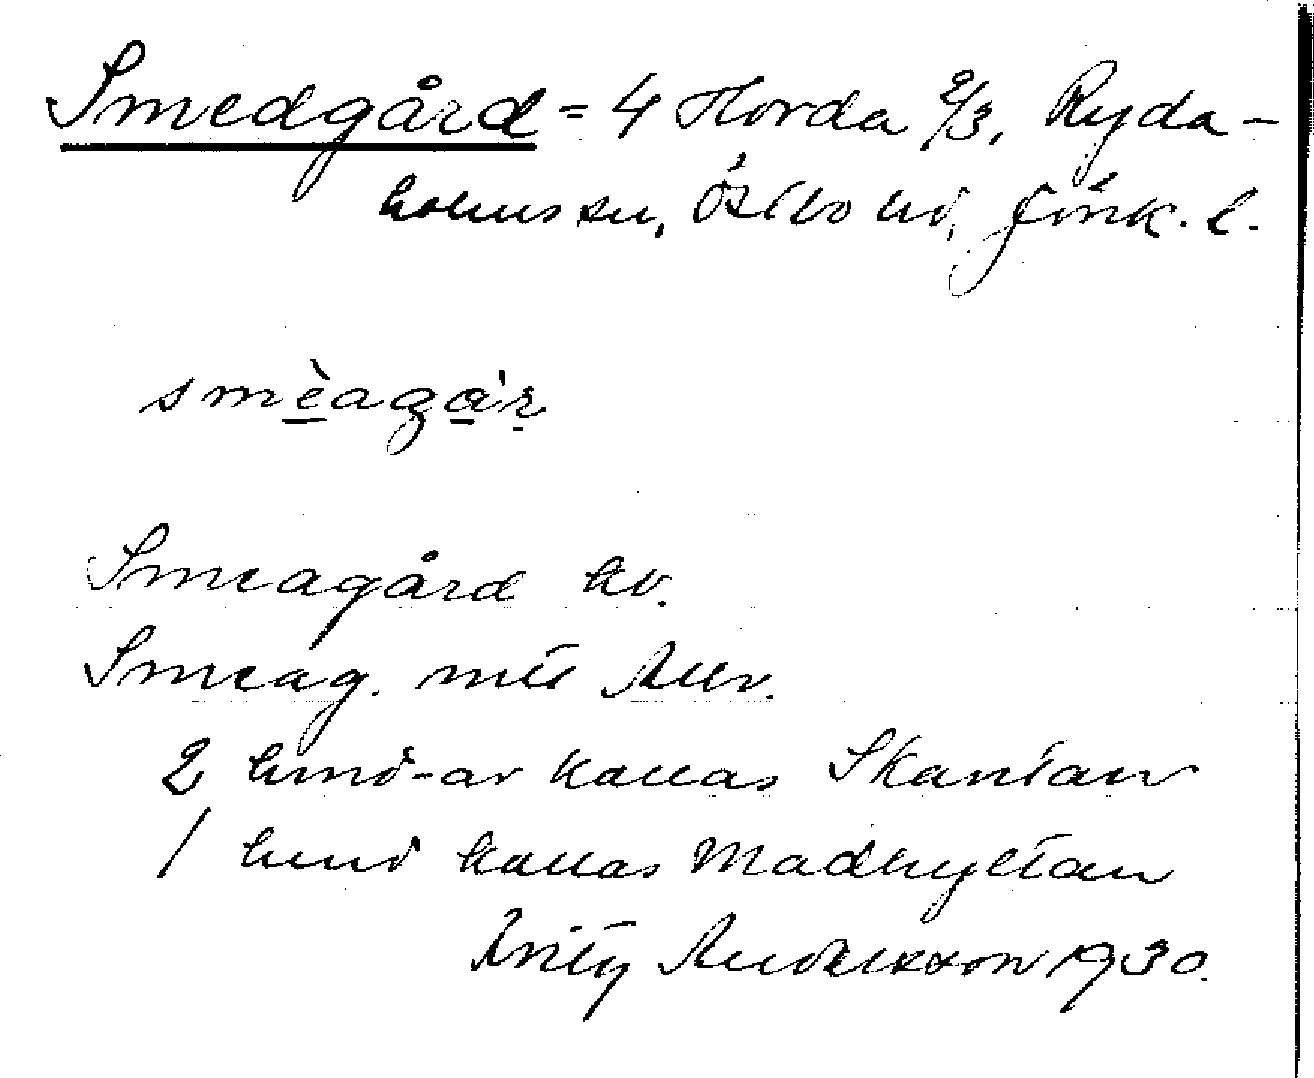 Smedgård = 4 Horda 2/3, Ryda-
holms sn, Östbo hd, Jönk. l.
smèagár
Smeagård hv.
Smeag. mtl
2 hmd-ar kallas Skantan
1 hmd kallas Madhyltan
Andersson 1930.